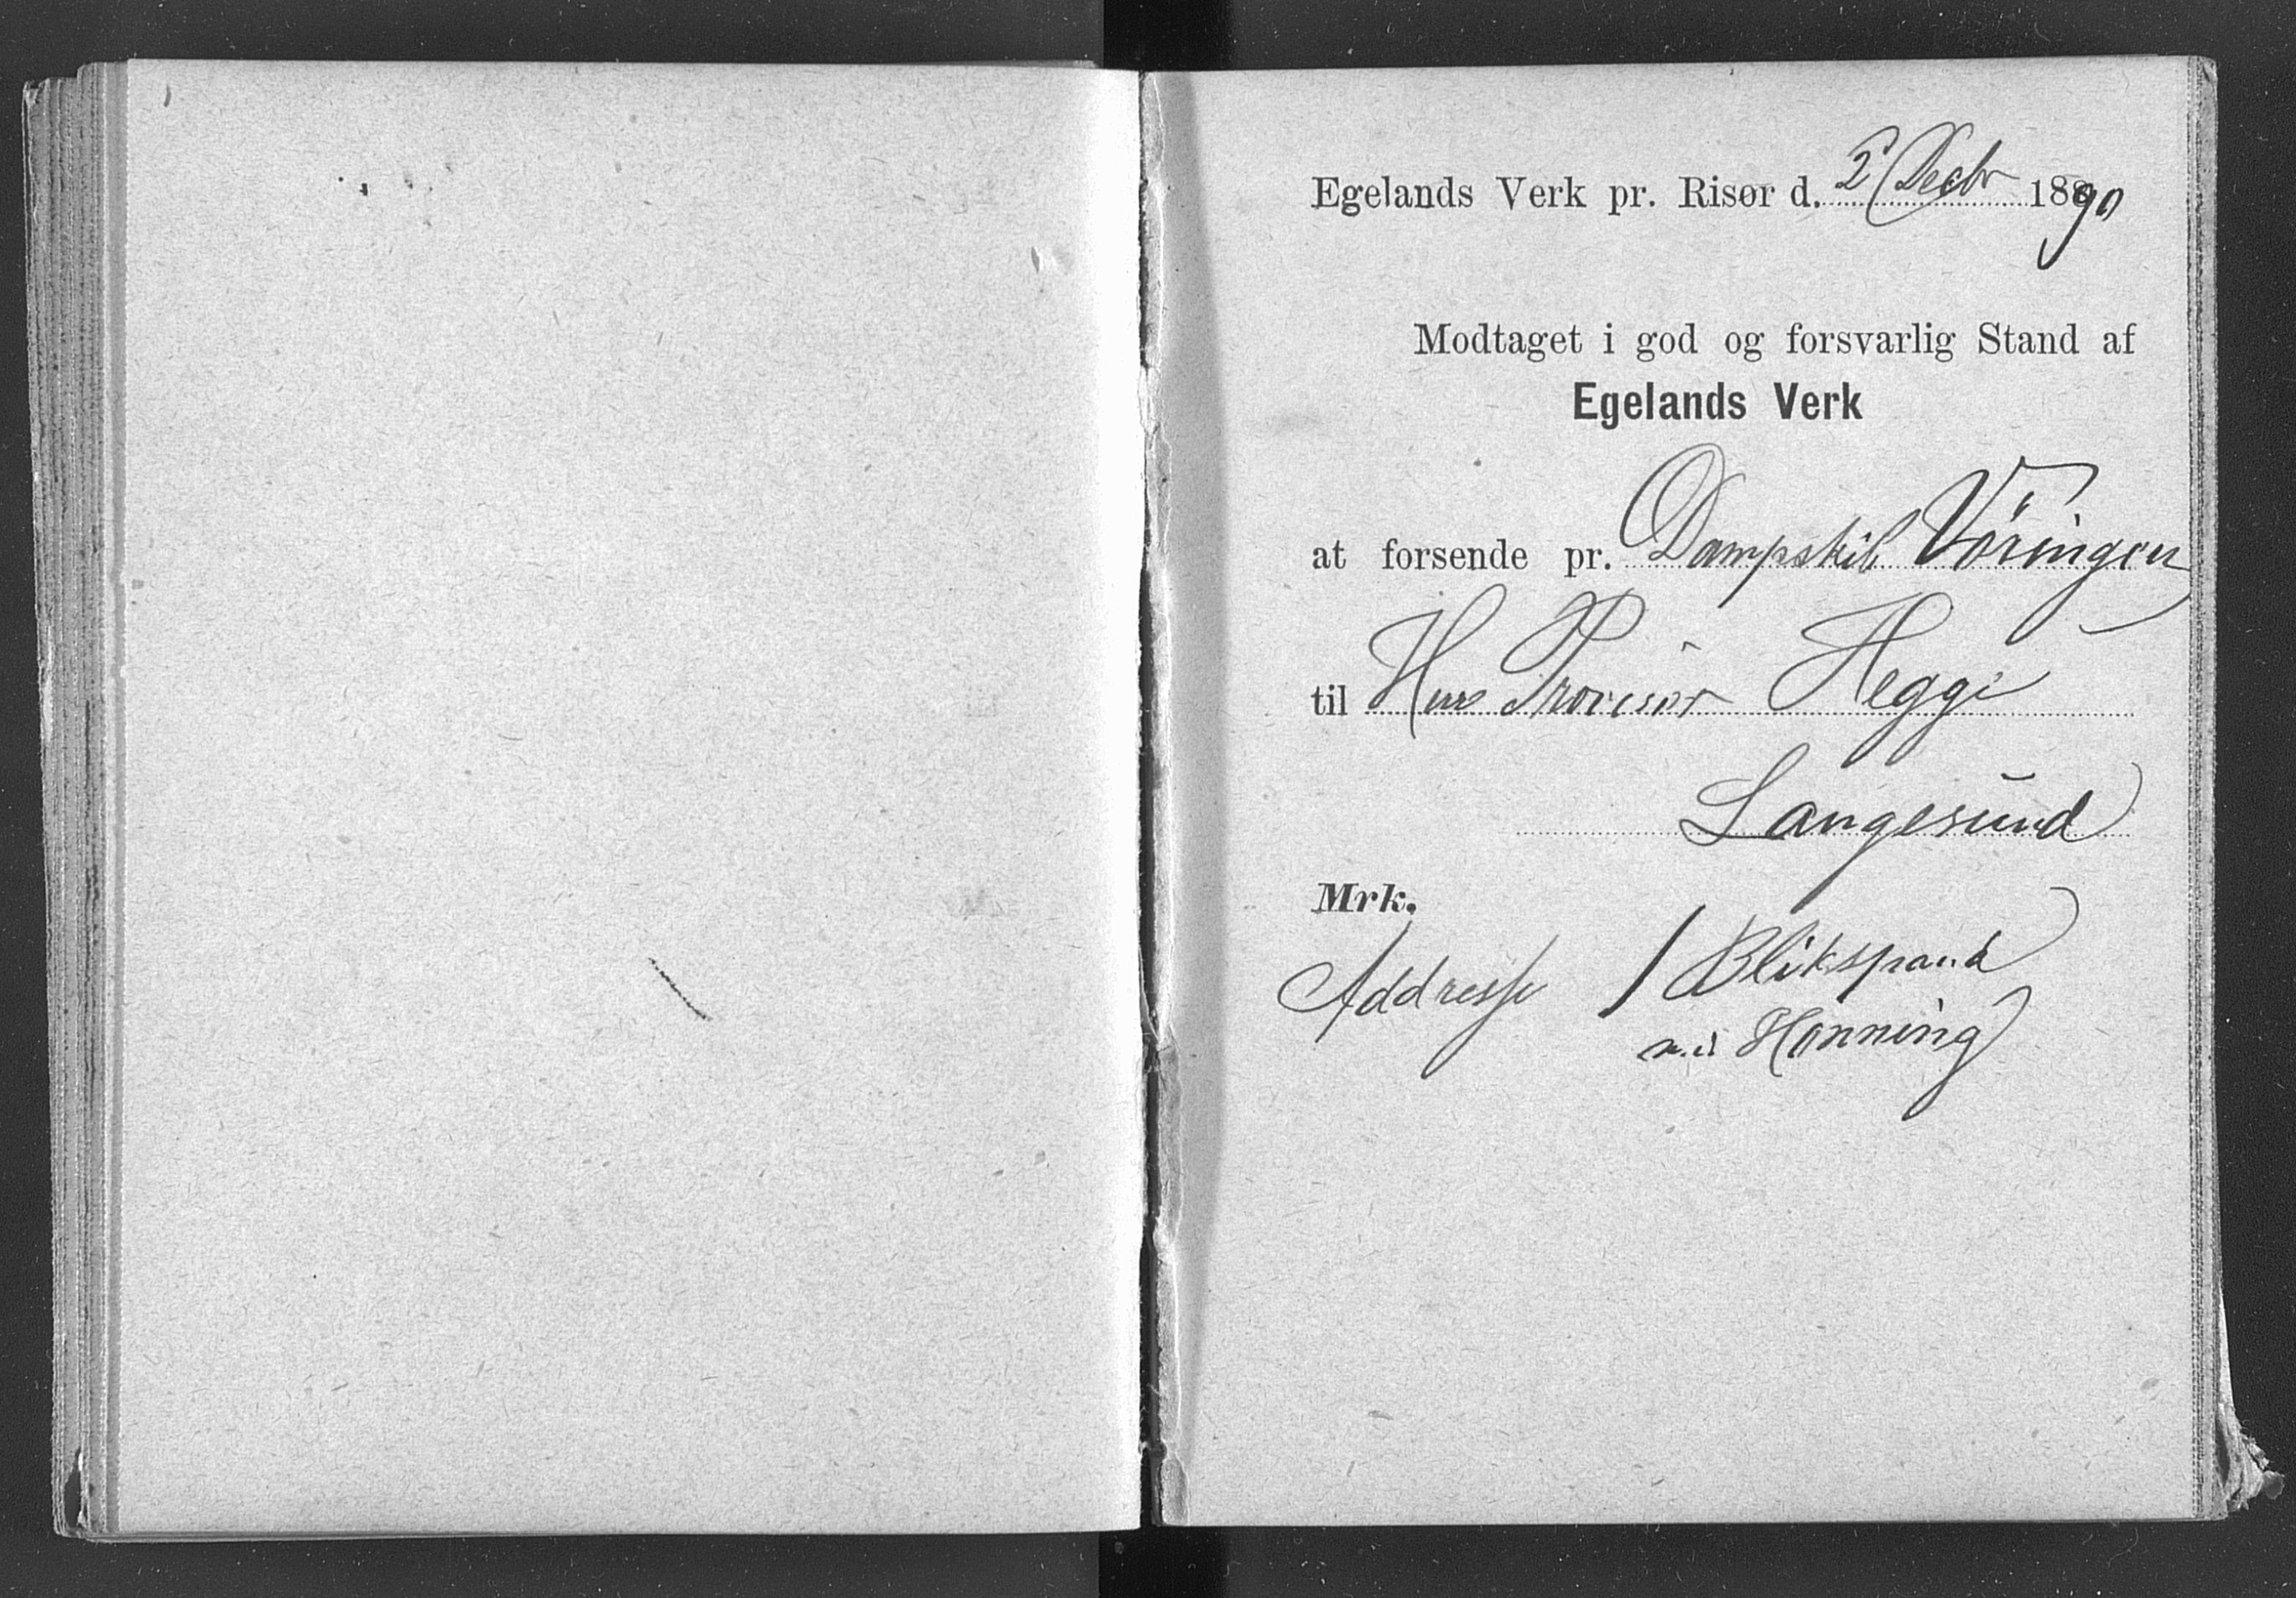 Egelands Verk pr. Risør d. 2 Decbr 1890
Modtaget i god og forsvarlig Stand af
Egelands Verk
at forsende pr. Dampskib Vöringen
til Herr Provisor Heggi
Langesund
Mrk.
Addresse 1 Blikspand
med Honning